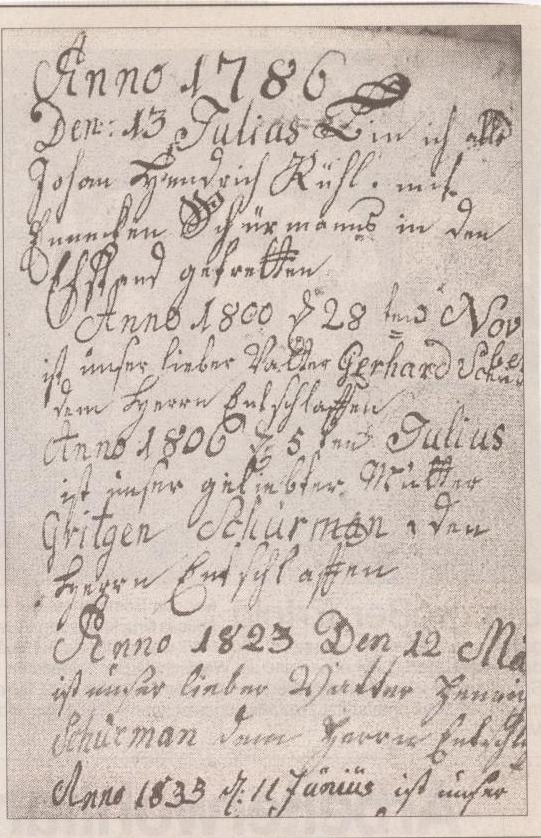 Anno 1786
Den: 13 Julius Bin ich alls
Johan Hendrich Kühl. mit
Ennecken Schürmanns in den
Ehstand getretten
Anno 1800 d 28 tens Nov
ist unser lieber Vatter Gerhard Schür
dem Herrn Entschlaffen
Anno 1806 d 5 tens Julius
ist unser geliebter Mutter
Gritgen Schürman den
Herrn Entschlaffen
Anno 1823 Den 12 Ma
ist unser lieber Vatter Henri
Schürman dem Herrn Entschla
Anno 1833 d: 11 Junius ist unser